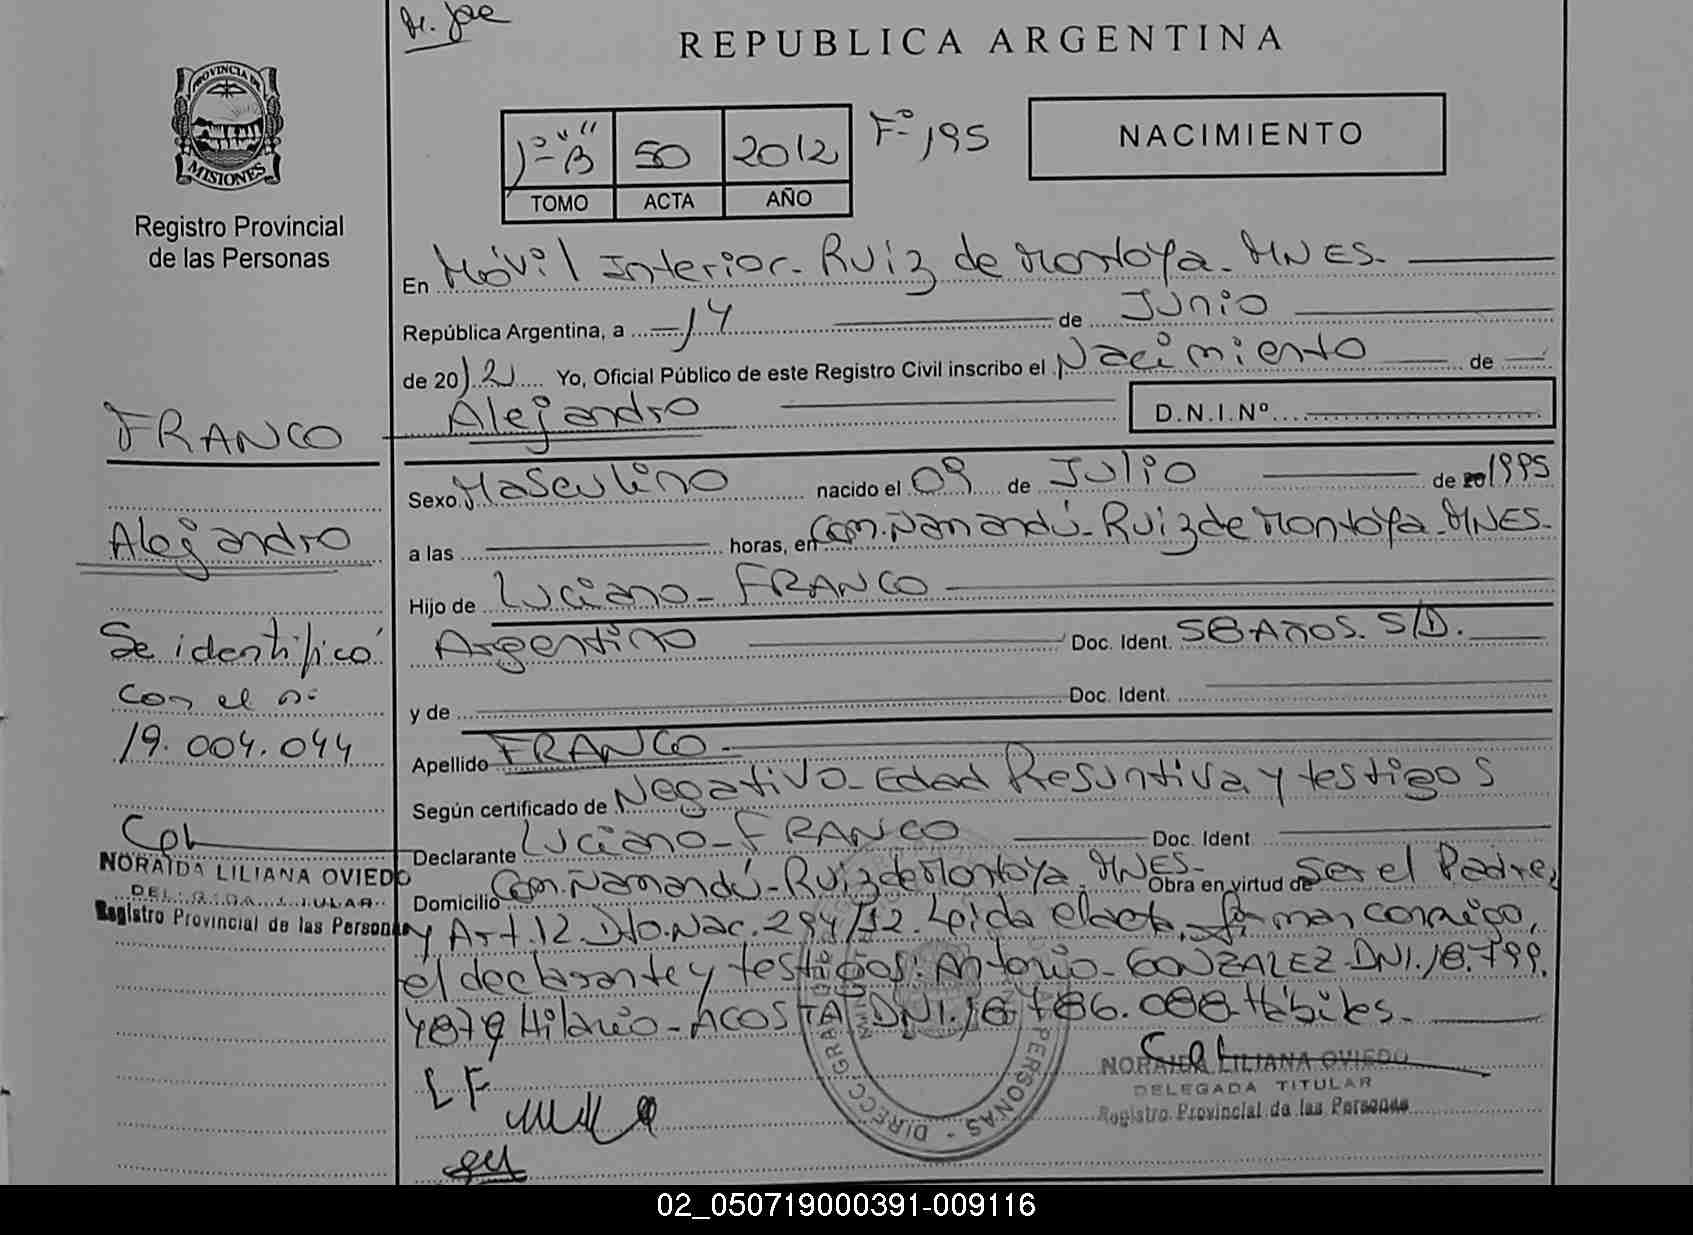 REPUBLICA ARGENTINA
PROVINCIA DE
MISIONES
Registro Provincial
de las Personas
1º "B" 50 2012 Fº 195
TOMO ACTA AÑO
NACIMIENTO
En Móvil Interior - Ruiz de Montoya - MNES.
República Argentina, a 14 de Junio
de 2012 Yo, Oficial Público de este Registro Civil inscribo el Nacimiento de
Alejandro D.N.I.Nº
FRANCO
Alejandro
Se identificó
con el nº
19.004.044
NORAIDA LILIANA OVIEDO
DELEGADA TITULAR
Registro Provincial de las Personas
Sexo Masculino nacido el 09 de Julio de 1995
a las horas, en Com. Ñamandú - Ruiz de Montoya - MNES.
Hijo de Luciano - FRANCO
Argentino Doc. Ident. 58 Años. S/D.
y de Doc. Ident.
Apellido FRANCO
Según certificado de Negativo - Edad Presuntiva y testigos
Declarante Luciano - FRANCO Doc. Ident
Domicilio Com. Ñamandú - Ruiz de Montoya. MNES - Obra en virtud de Ser el Padre,
y Art. 12 Dto. Nac. 294/12. Leída el acta, firman conmigo,
el declarante y testigos: Antonio - GONZALEZ - DNI. 18.799.
487 y Hilario - ACOSTA DNI. 18.786.088 Hábiles.
LF
NORAIDA LILIANA OVIEDO
DELEGADA TITULAR
Registro Provincial de las Personas
PERSONAS - DIRECC GRAL
02_050719000391-009116